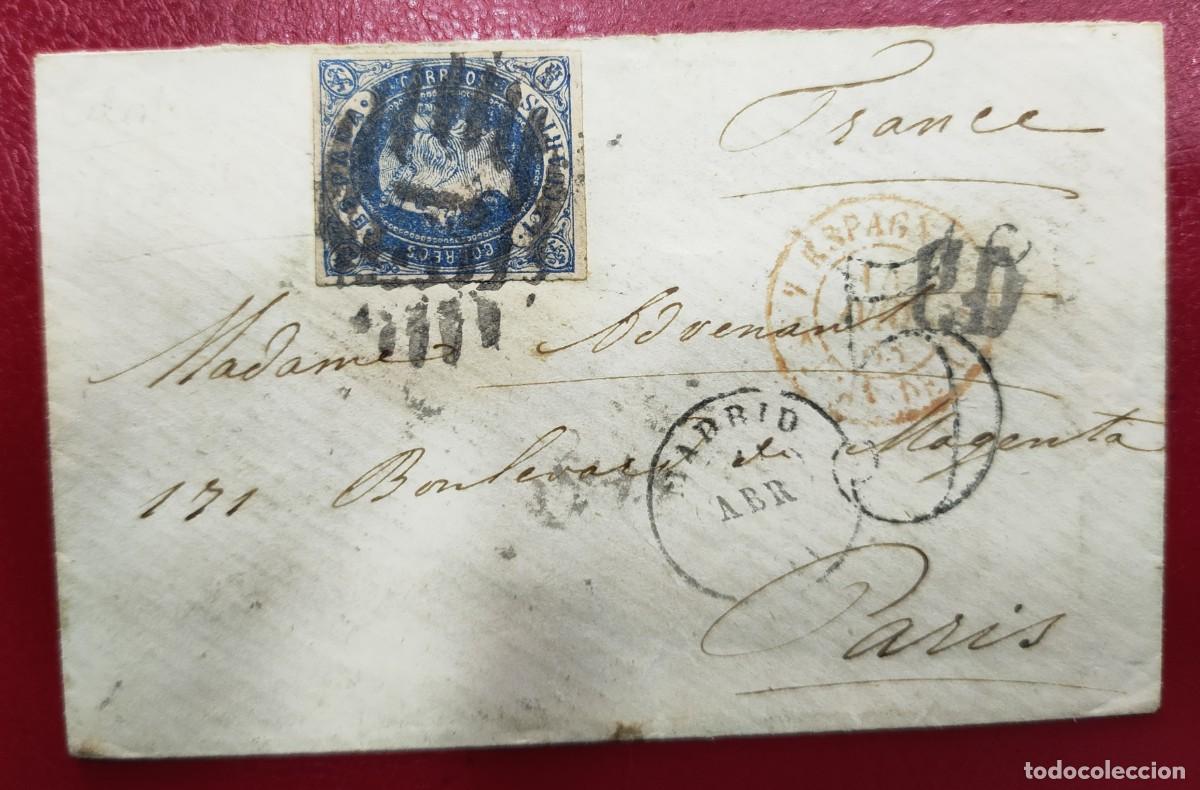 France
CORREOS
ESPAÑA
CORREOS
ESPAG
PD
Madame Advenant
MADRID
ABR
171 Boulevard de Magenta
Paris
todocoleccion